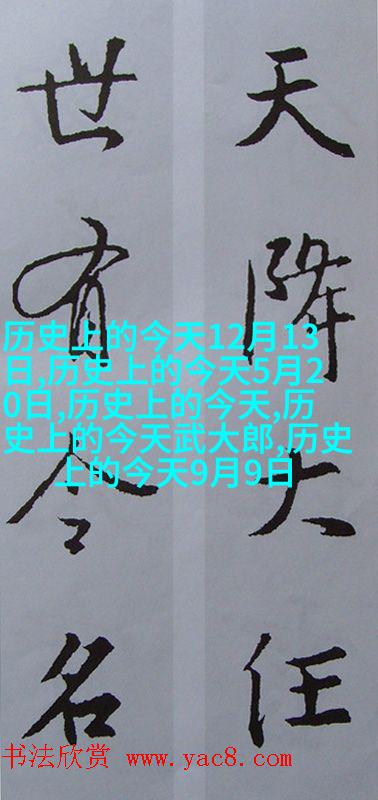 天降大任
世有令名
历史上的今天12月13
日,历史上的今天5月2
0日,历史上的今天,历
史上的今天武大郎,历史
上的今天9月9日
书法欣赏 www.yac8.com